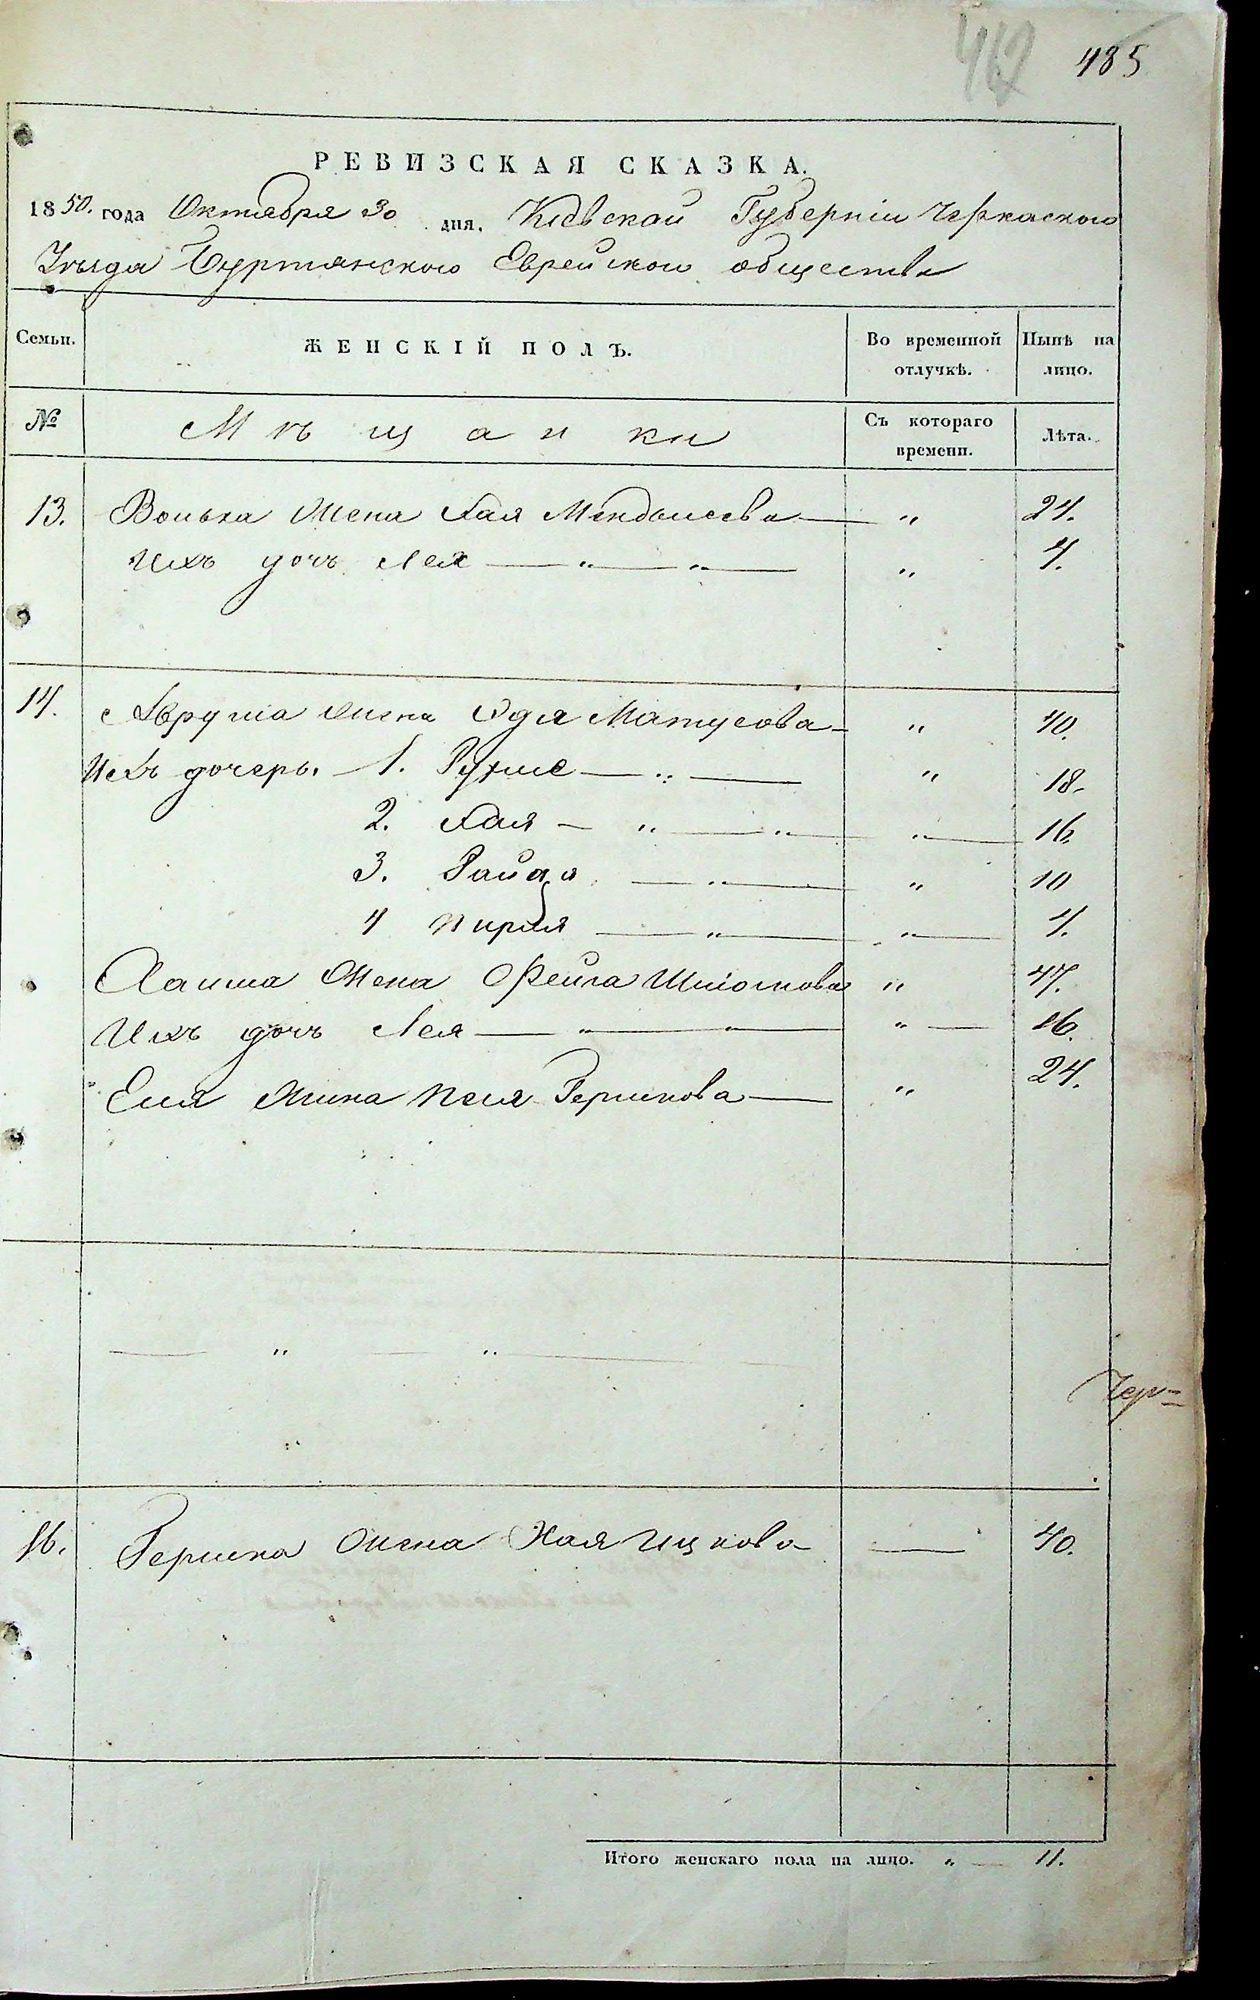 485
РЕВИЗСКАЯ СКАЗКА.
1850. года Октября 30 дня. Кіевской Губерніи Черкаского
Уѣзда Буртянского Еврейского общества
Семьи. ЖЕНСКІЙ ПОЛЪ. Во временной отлучкѣ. Нынѣ на лицо.
№ Мѣщанки Съ котораго времени. Лѣта.
13. Волька жена Хая Мендылева — „ 24.
Ихъ дочь Лея — „ — „ — „ 4.
14. Аврума жена Эдля Матусова — „ 40.
Ихъ дочерь. 1. Рухле — „ — „ 18.
2. Хая — „ — „ — „ — 16.
3. Райза — „ — „ 10
4 Перля — „ — „ — 4.
Хаима жена Фейга Шліомова „ 47.
Ихъ дочь Лея — „ — „ — „ — 16.
Еля жена Песя Гершкова — „ 24.
— „ — „ —
„
Чер=
16. Гершка жена Хая Ицкова — 40.
Итого женскаго пола на лицо. „ — 11.